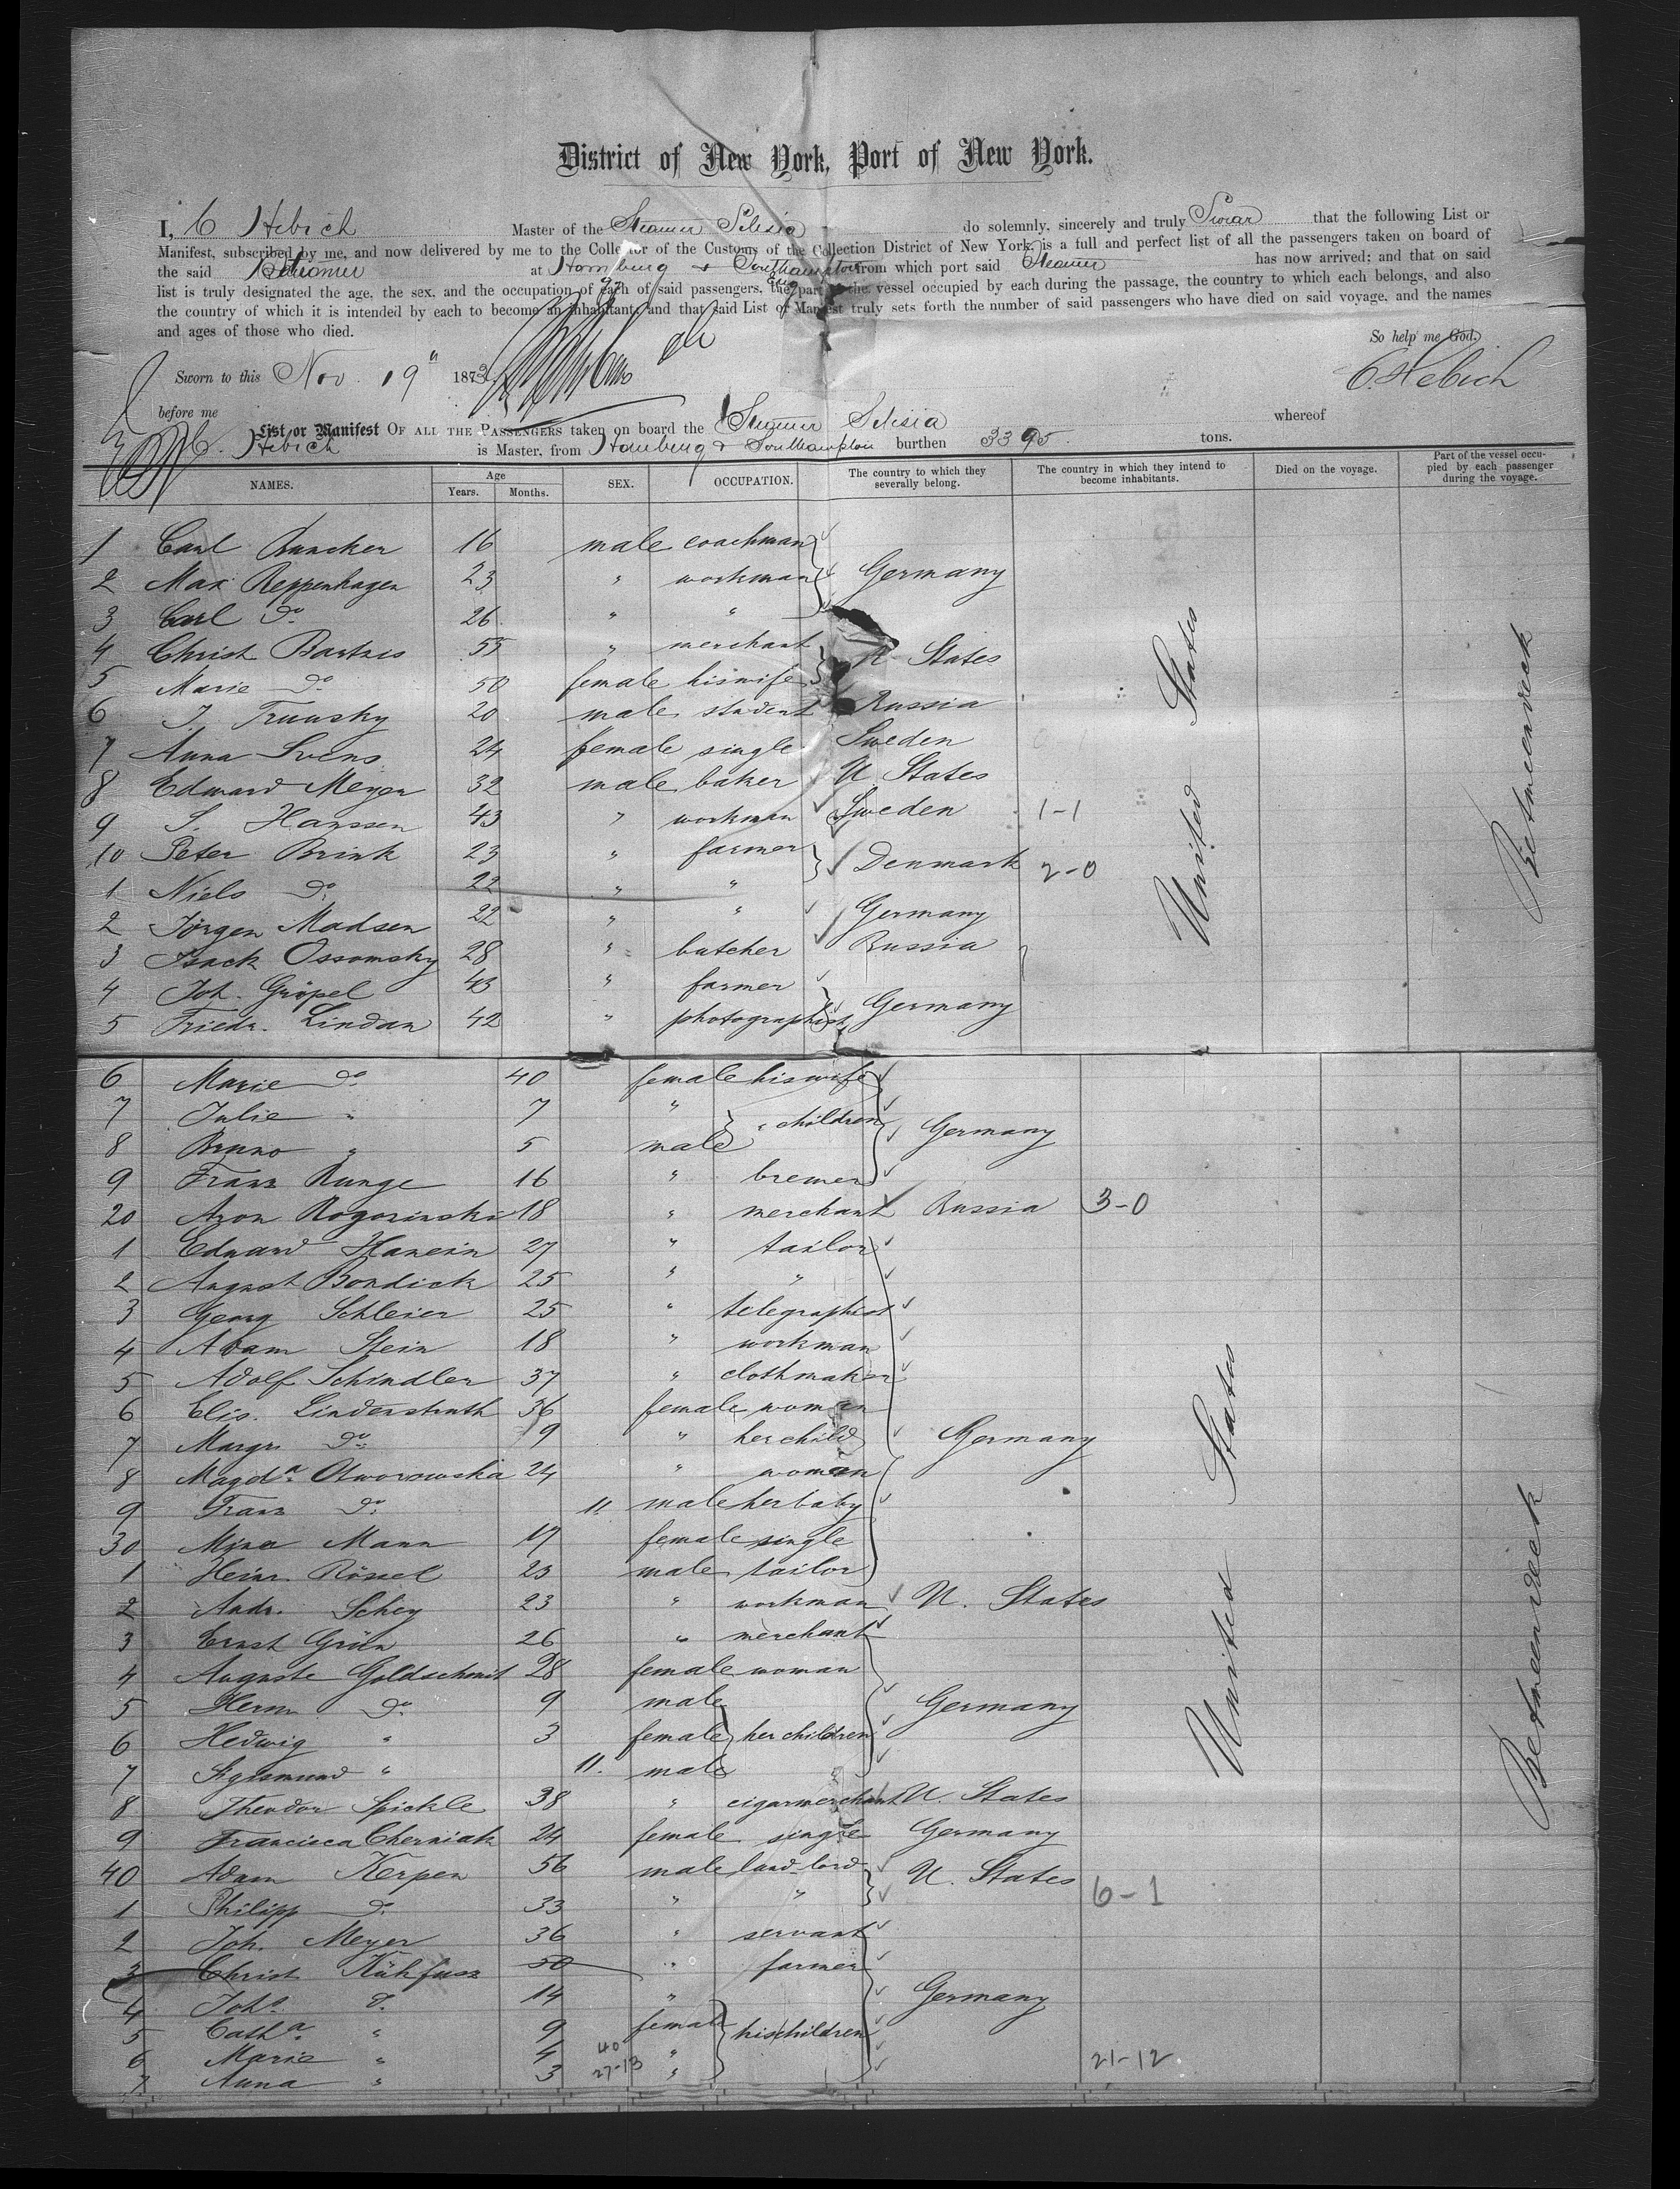 District of New York, Port of New York.
I, C Hebich Master of the Steamer Silesia do solemnly, sincerely and truly Swear that the following List or
Manifest, subscribed by me, and now delivered by me to the Collector of the Customs of the Collection District of New York, is a full and perfect list of all the passengers taken on board of
the said Steamer at Hamburg & Southampton from which port said Steamer has now arrived; and that on said
list is truly designated the age, the sex, and the occupation of each of said passengers, the part of the vessel occupied by each during the passage, the country to which each belongs, and also
the country of which it is intended by each to become an inhabitant; and that said List or Manifest truly sets forth the number of said passengers who have died on said voyage, and the names
and ages of those who died.
So help me God.
Sworn to this Nov. 19" 1873
C. Hebich
before me
List or Manifest OF ALL THE PASSENGERS taken on board the Steamer Silesia whereof
C. Hebich is Master, from Hamburg & Southampton burthen 3395 tons.
NAMES. Age Years. Months. SEX. OCCUPATION. The country to which they severally belong. The country in which they intend to become inhabitants. Died on the voyage. Part of the vessel occupied by each passenger during the voyage.
1 Carl Buncker 16 male coachman
2 Max Reppenhagen 23 " workman Germany
3 Carl do 26 " "
4 Christ Bartris 55 " merchant U States
5 Marie do 50 female his wife
6 J. Truwsky 20 male student Russia
7 Anna Svens 24 female single Sweden
8 Edward Meyer 32 male baker U States
9 S. Hanssen 43 " workman Sweden 1-1
10 Peter Brink 23 " farmer Denmark 2-0
1 Niels do 22 " "
2 Jörgen Madsen 22 " " Germany
3 Isack Ossomsky 28 " butcher Russia
4 Joh. Gröpel 43 " farmer
5 Friedr. Lindau 42 " photographist Germany
United States
Betweendeck
6 Marie do 40 female his wife
7 Julie " 7 " children Germany
8 Bruno " 5 male
9 Franz Runge 16 " brewer
20 Aron Rogorinski 18 " merchant Russia 3-0
1 Eduard Hanein 27 " tailor
2 August Bordick 25 " "
3 Georg Schleier 25 " telegraphist
4 Adam Stein 18 " workman
5 Adolf Schindler 37 " clothmaker
6 Elis. Linderstruth 36 female woman
7 Margr. do 9 " her child Germany
8 Magda Otworowska 24 " woman
9 Franz do 11. male her baby
30 Mina Mann 17 female single
1 Heinr. Rössel 23 male tailor
2 Andr. Schey 23 " workman U. States
3 Ernst Grün 26 " merchant
4 Auguste Goldschmit 28 female woman
5 Herm do 9 male Germany
6 Hedwig " 3 female her children
7 Sigismund " 11. male
8 Theodor Spickle 38 " cigarmerchant U. States
9 Francisca Cherniak 24 female single Germany
40 Adam Kerpen 56 male landlord U. States
1 Philipp do 33 " " 6-1
2 Joh. Meyer 36 " servant
3 Christ Kühfuss 50 " farmer
4 Joh. d. 14 " Germany
5 Catha " 9 female his children
6 Marie " 4 40 "
7 Anna " 3 27-13 " 21-12.
United States
Betweendeck